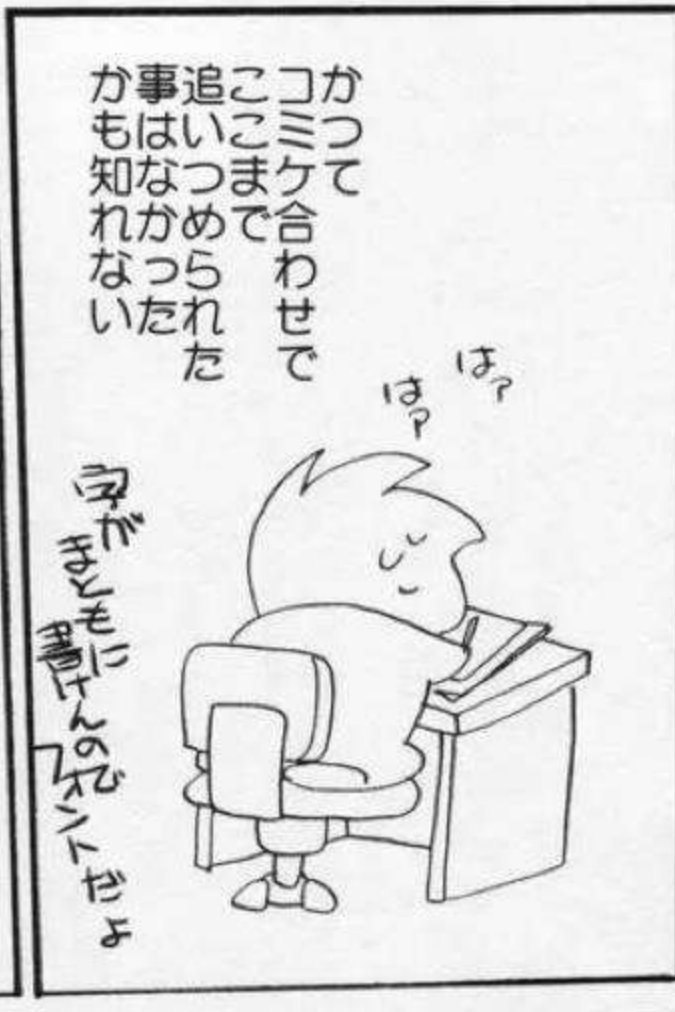 かつて
コミケ合わせで
ここまで
追いつめられた
事はなかった
かも知れない
はァ
はァ
字が
まともに
書けんので
フォントだよ